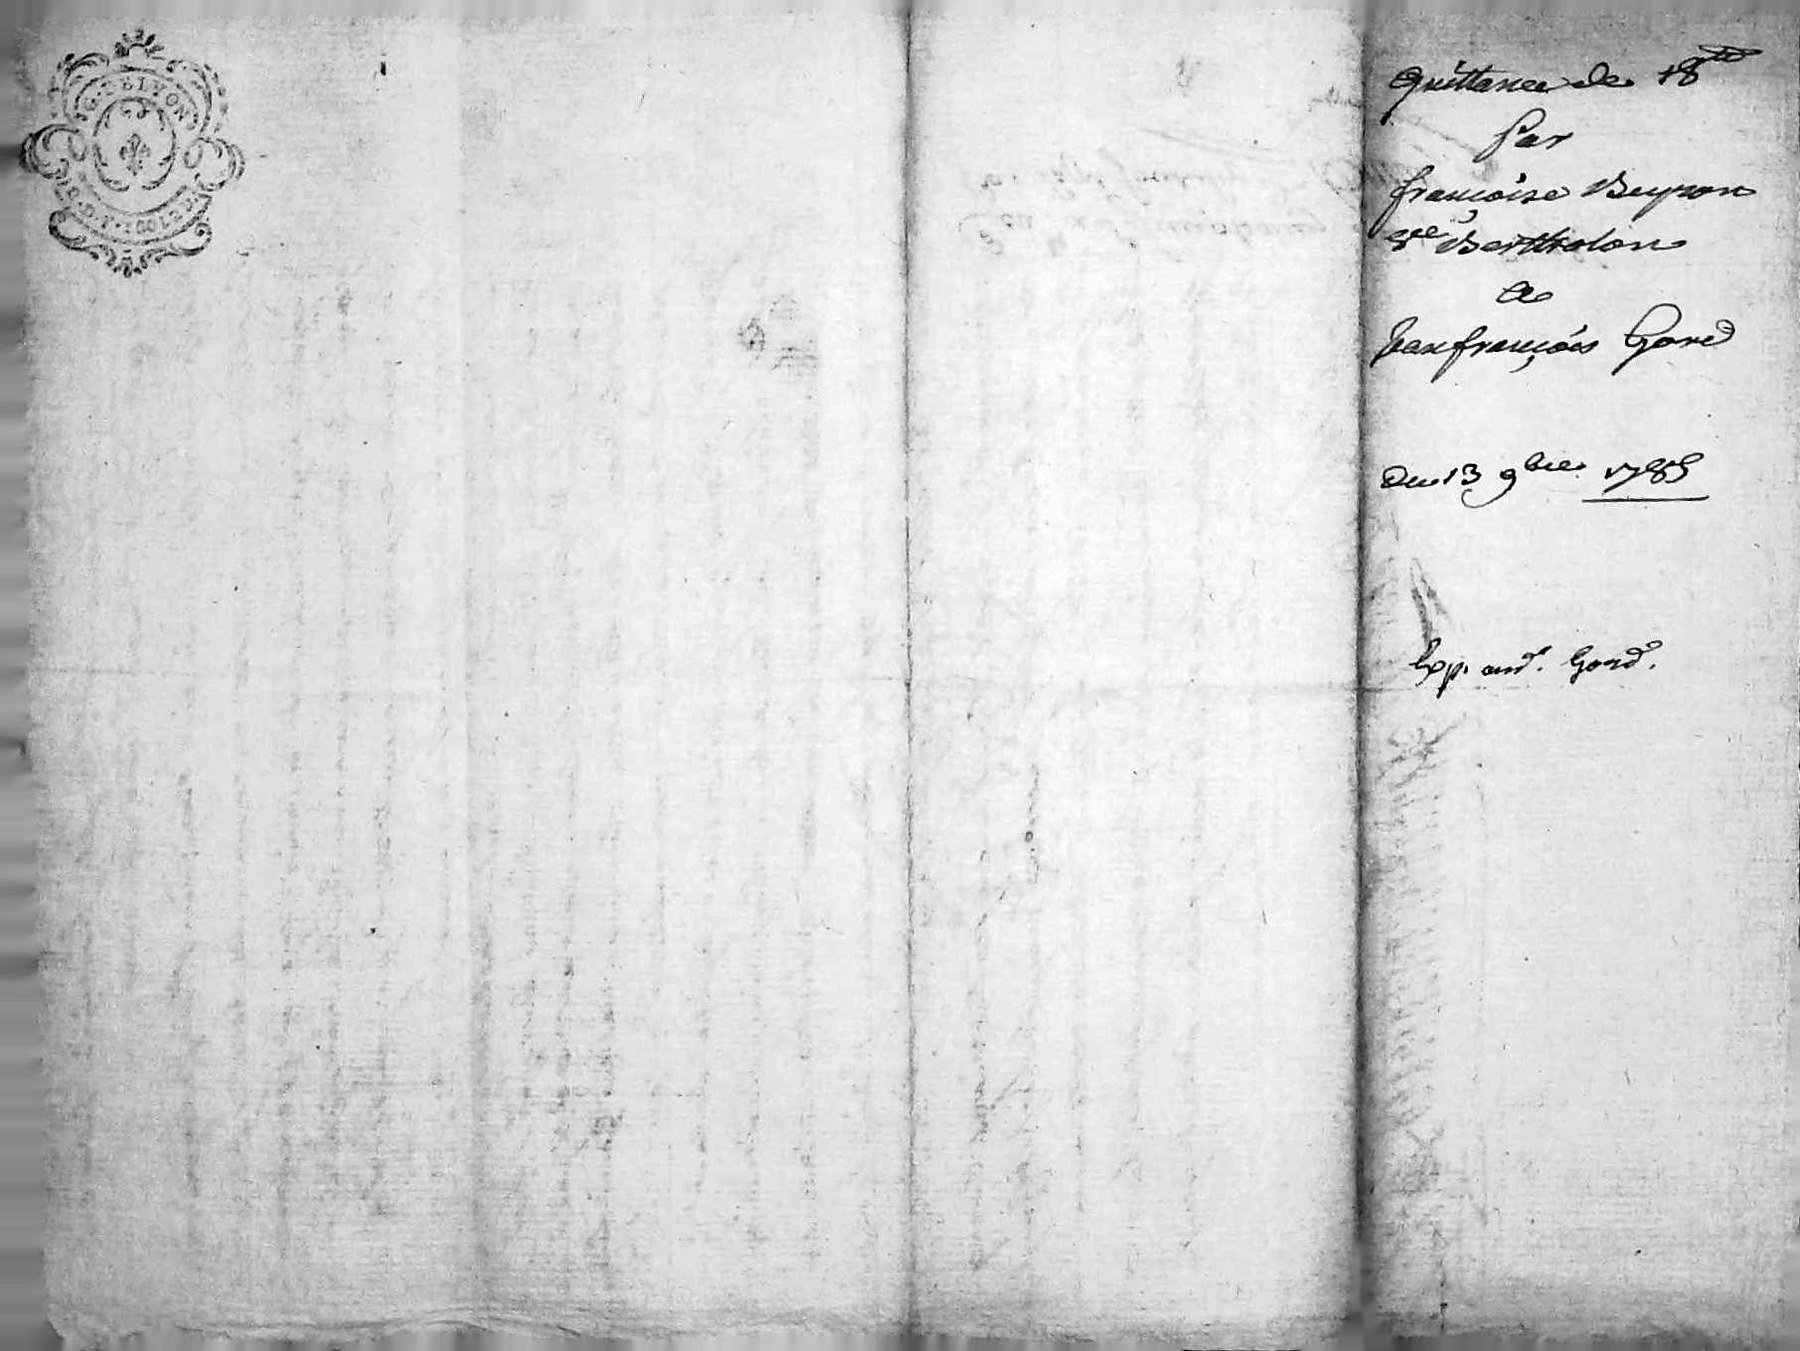 G. DE LYON
Quittance de 18tt
par
francoise Beyron
Ve Bertholon
a
Jeanfrançois Gord
Du 13 9bre 1785
Exp. and. Gord.